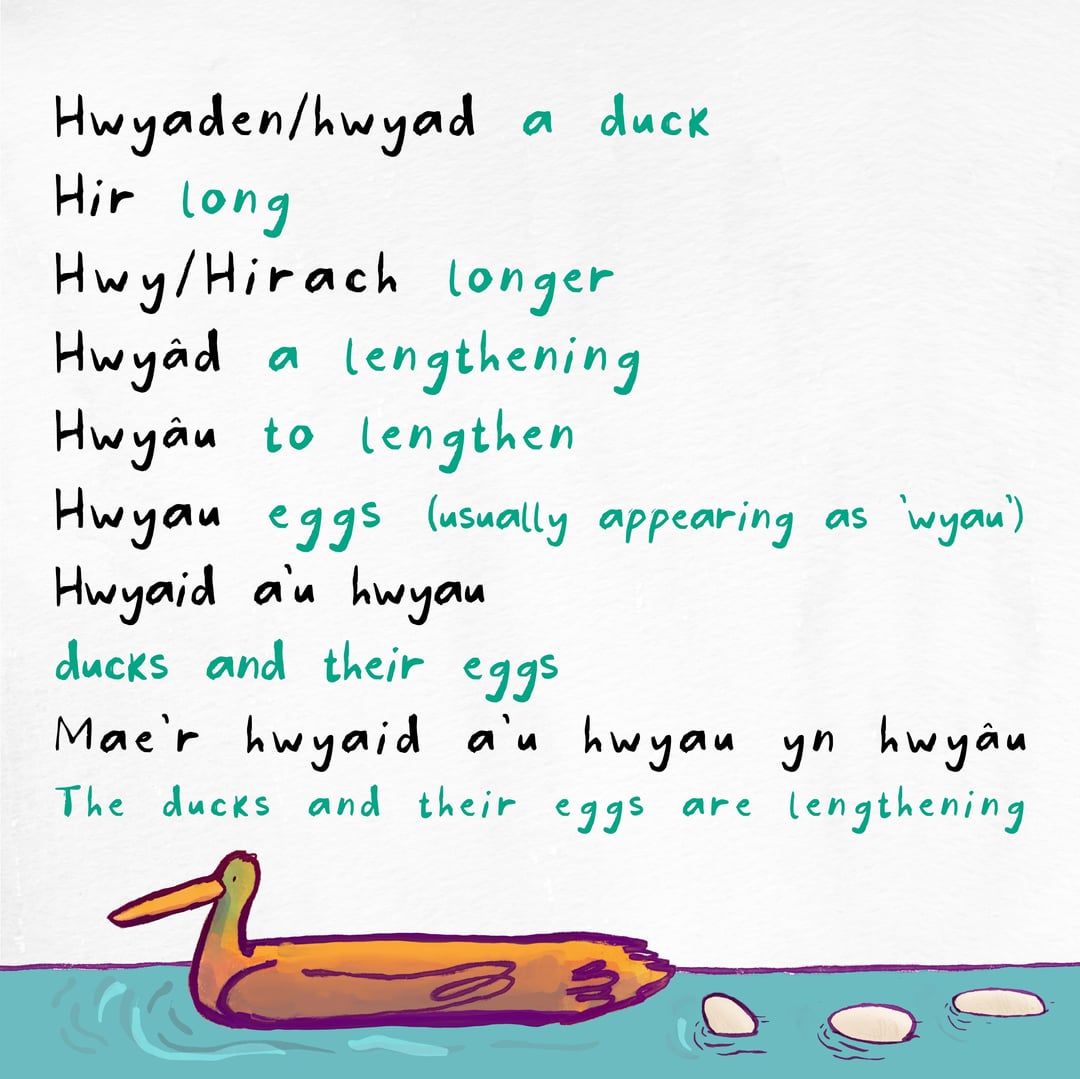 Hwyaden/hwyad a duck
Hir long
Hwy/Hirach longer
Hwyâd a lengthening
Hwyâu to lengthen
Hwyau eggs (usually appearing as 'wyau')
Hwyaid a'u hwyau
ducks and their eggs
Mae'r hwyaid a'u hwyau yn hwyâu
The ducks and their eggs are lengthening